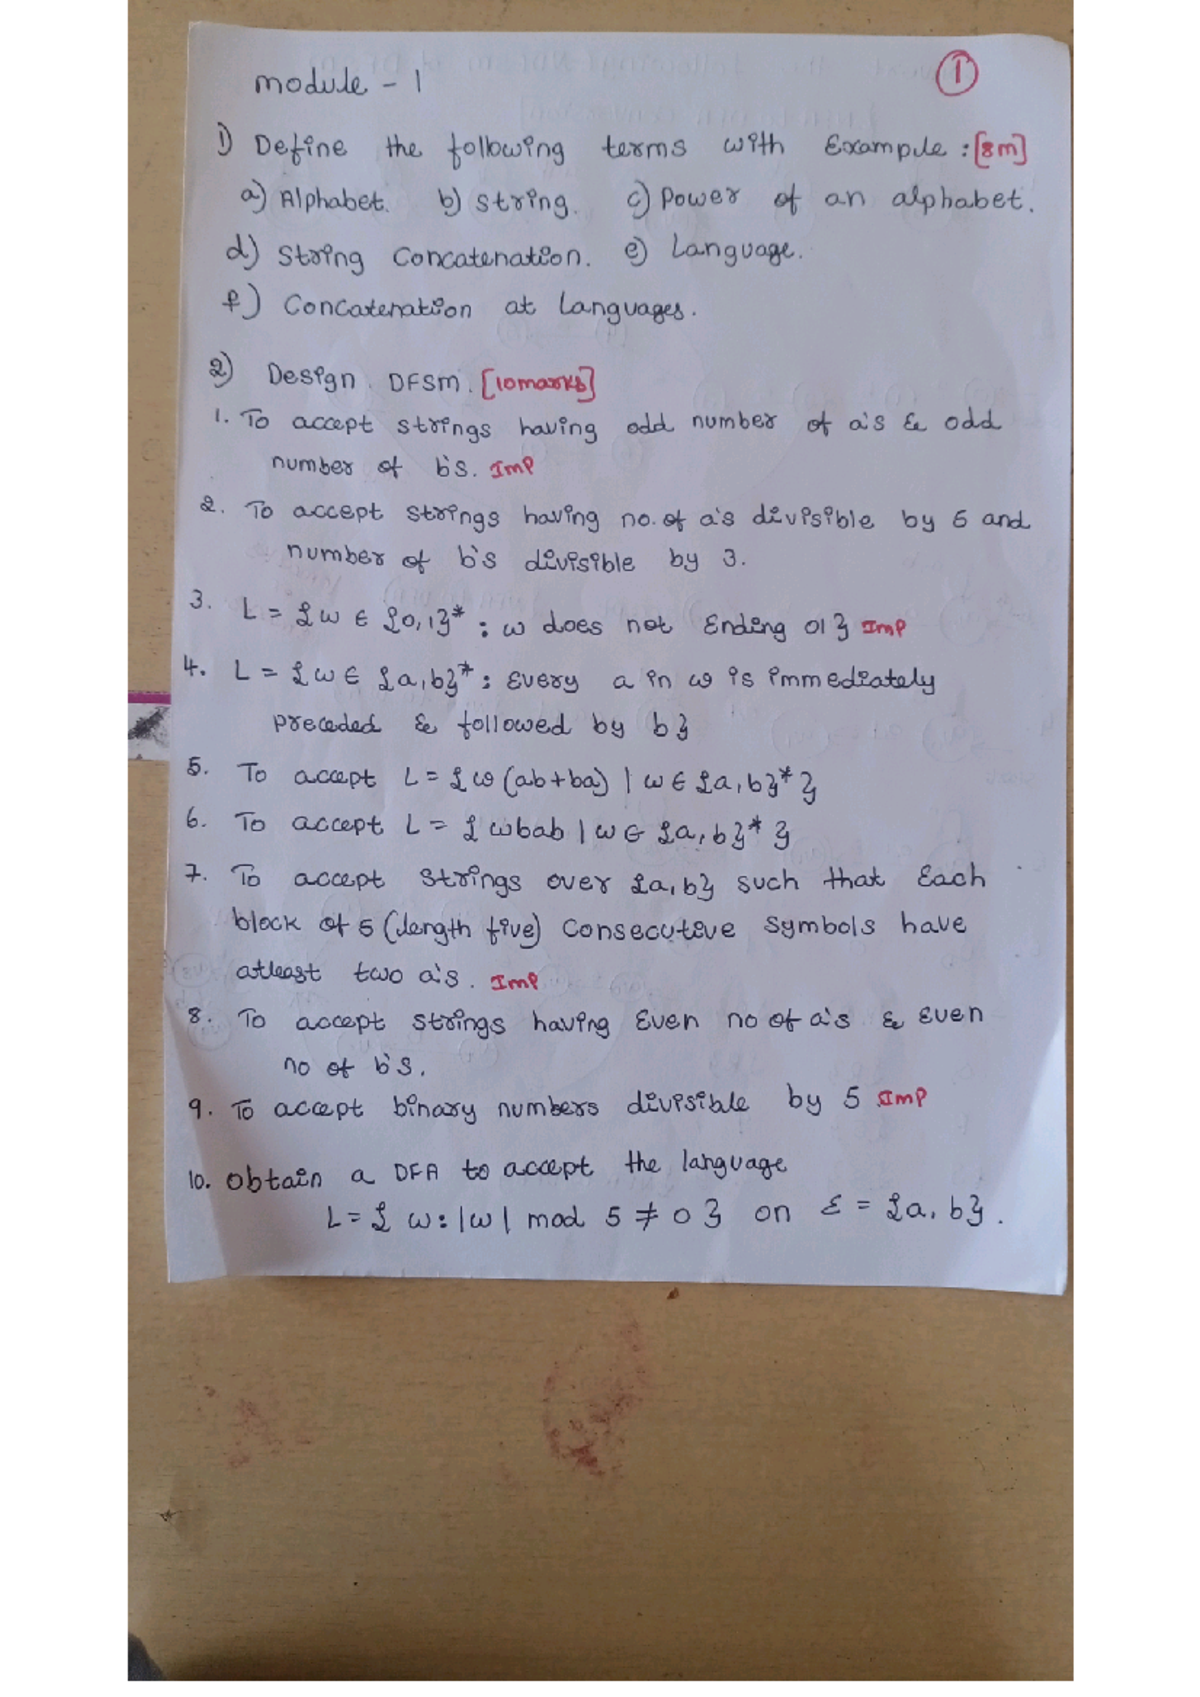 Module - 1
1
1) Define the following terms with Example : [8m]
a) Alphabet. b) string. c) Power of an alphabet.
d) String Concatenation. e) Language.
f) Concatenation at Languages.
2) Design DFSM. [10marks]
1. To accept strings having odd number of a's & odd
number of b's. Imp
2. To accept strings having no. of a's divisible by 5 and
number of b's divisible by 3.
3. L = { w ∈ {0,1}* : w does not Ending 01 } Imp
4. L = { w ∈ {a,b}* : Every a in w is immediately
preceded & followed by b }
5. To accept L = { w (ab+ba) | w ∈ {a,b}* }
6. To accept L = { wbab | w ∈ {a,b}* }
7. To accept strings over {a,b} such that Each
block of 5 (length five) Consecutive Symbols have
atleast two a's. Imp
8. To accept strings having Even no of a's & Even
no of b's.
9. To accept binary numbers divisible by 5 Imp
10. Obtain a DFA to accept the language
L = { w : |w| mod 5 ≠ 0 } on Σ = {a, b}.